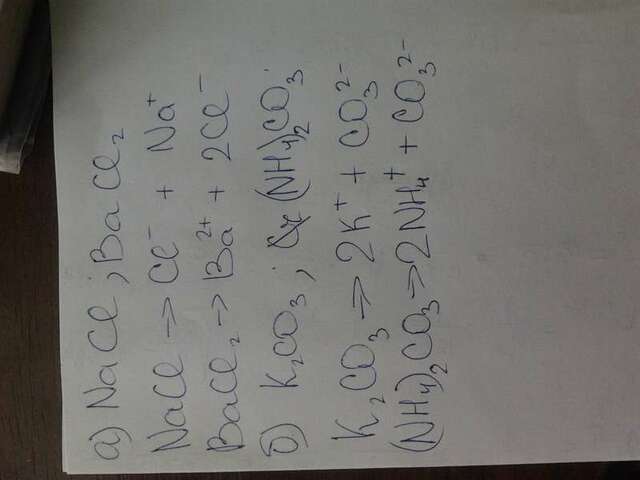 а) NaCl; BaCl₂
NaCl → Cl⁻ + Na⁺
BaCl₂ → Ba²⁺ + 2Cl⁻
б) K₂CO₃; (NH₄)₂CO₃.
K₂CO₃ → 2K⁺ + CO₃²⁻
(NH₄)₂CO₃ → 2NH₄⁺ + CO₃²⁻